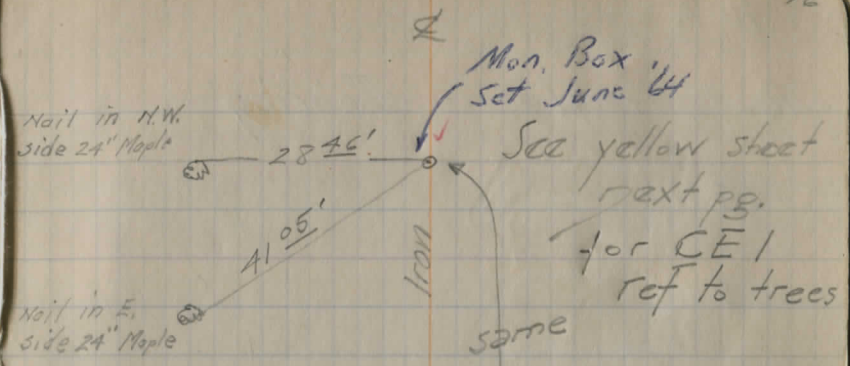 ℄
Mon. Box
Set June '64
Nail in N.W.
side 24" Maple
28 46'
See yellow sheet
next pg.
for CE1
ref to trees
41 05'
Iron
Nail in E.
side 24" Maple
same